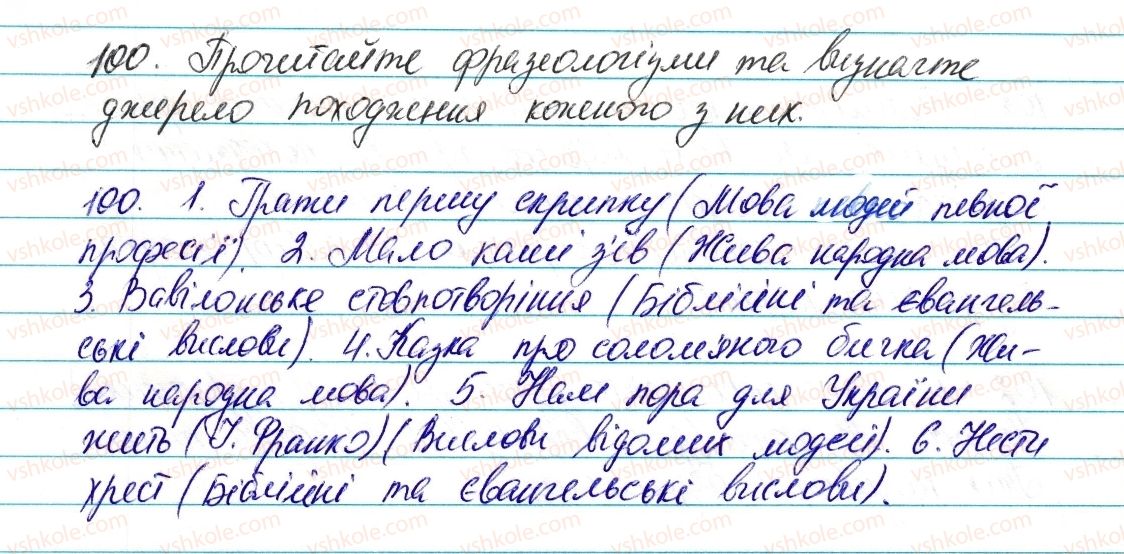 100. Прочитайте фразеологізми та визначте
джерело походження кожного з них.
100. 1. Грати першу скрипку (Мова людей певної
професії). 2. Мало каші з'їв (Жива народна мова).
3. Вавілонське стовпотворіння (Біблійні та євангель-
ські вислови). 4. Казка про солом'яного бичка (Жи-
ва народна мова). 5. Нам пора для України
жить (І. Франко) (Вислови відомих людей). 6. Нести
хрест (Біблійні та євангельські вислови).